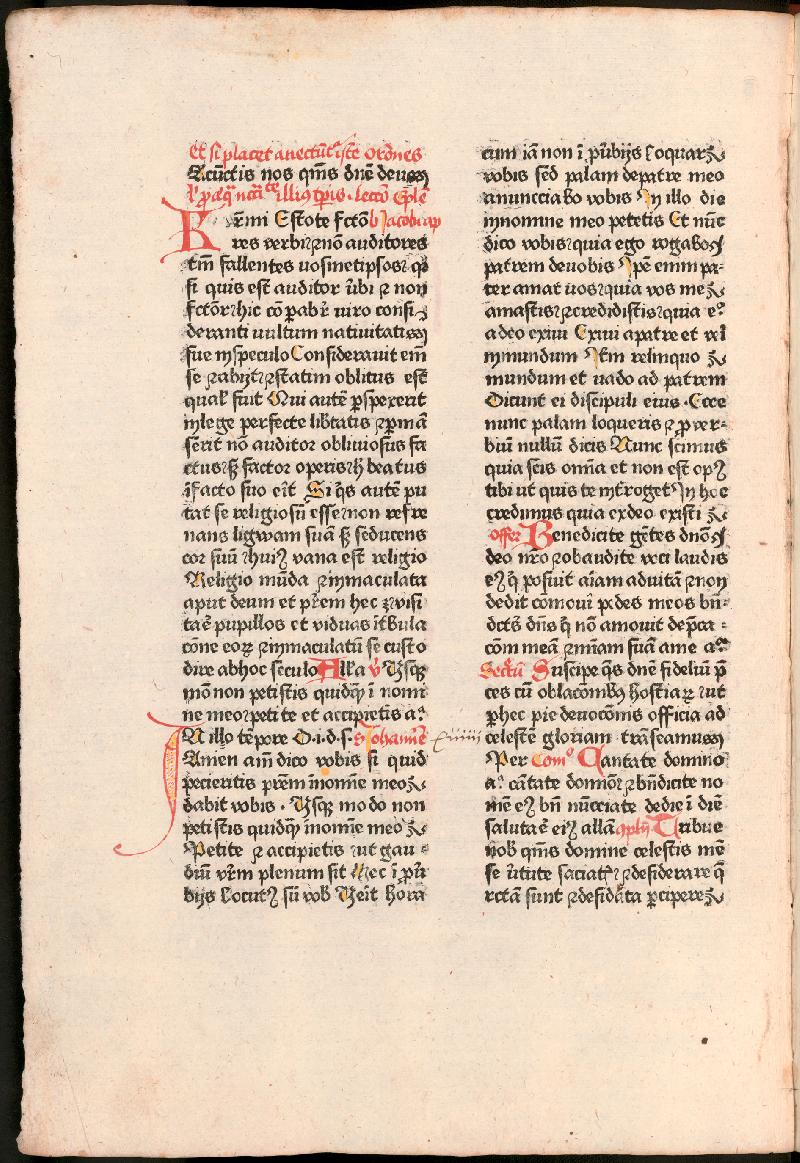 Et si placet anectūt᷑ iste ordnes
Acūctis nos qm̄s dnē deus
illius tp̄is. lectō Ep̄le
Rēmi Estote fctō b Jacobi ap
res verbi ⁊ nō auditores
tm̄ fallentes vosmetipsos ⁊ q̄
si quis est auditor v̄bi ⁊ non
fctōr hic cō pabr̄ viro consi
deranti vultum nativitatis
sue in speculo Consideravit em̄
se ⁊ abijt ⁊ statim oblitus est
qual' fuit Qui autē ꝑspexerit
in lege perfecte lib̄tatis ⁊ ꝑmā
serit nō auditor obliuiosus fa
ctus sꝫ factor operis h̄ beatus
ī facto suo erīt Si q̄s autē pu
tat se religiosū esse non refre
nans ligwam suā sꝫ seducens
cor suū huiꝰ vana est religio
Religio mūda ⁊ inmaculata
aput deum et p̄rem hec ē visi
tarē pupillos et viduas ī tbula
cōne eoꝝ ⁊ inmaculatū se custo
dire ab hoc seculo All'a v̄ Usqꝫ
mō non petistis quidqꝫ ī nomi
ne meo petite et accipietis a᷑
IN illo tēpore D. i. d. s. Johannē
Amen am̄ dico vobis si quid
pecieritis prēm ī nomīe meo
dabit vobis. Usqꝫ modo non
petistis quidqꝫ ī nomīe meo
Petite ⁊ accipietis ut gau
diū vr̄m plenum sit Hec ī ꝓu̇
bijs Locutꝰ sū vob Ueīt hora
cum iā non ī ꝓu̇bijs loquar
vobis sed palam de patre meo
anunciabo vobis In illo die
in nomine meo petetis Et nūc
dico vobis quia ego rogabo
patrem de vobis Ip̄e enim pa
ter amat vos quia vos me
amastis ⁊ credidistis quia e᷑
a deo exivi Exivi a patre et veī
in mundum Itm̄ relinquo
mundum et vado ad patrem
Dicunt ei discipuli eius. Ecce
nunc palam loqueris ⁊ prover
biū nullū dicis Nunc scimus
quia scis om̄ia et non est opꝰ
tibi ut quis te int̄roget In hoc
credimus quia ex deo existi
offer Benedicite gētes dnō
deo nr̄o ⁊ obaudite voci laudis
eꝰ q̄ posuit aīam ad uitā ⁊ non
dedit cōmoui pedes meos bn̄
dctꝰ dn̄s q̄ nō amouit dep̄ca
cōm meā ⁊ mīam suā a me a᷑
Sectū Suscipe q̄s dnē fideliū p̄
ces cū oblacōmbꝫ hostiaꝝ ut
ꝑ hec pie deuocōnis officia ad
celestē gloriam trāseamus
Per Comō Cantate domino
a᷑ cātate domnō ⁊ bn̄dicite no
mē eꝰ bn̄ nūcciate de die ī diē
salutarē eiꝰ allā 9plȳ Tribue
nob qm̄s domine celestis mē
se v̄tute saciat᷑ ⁊ desiderare q̄
rctā sunt ⁊ desid̄ata ꝑcipere